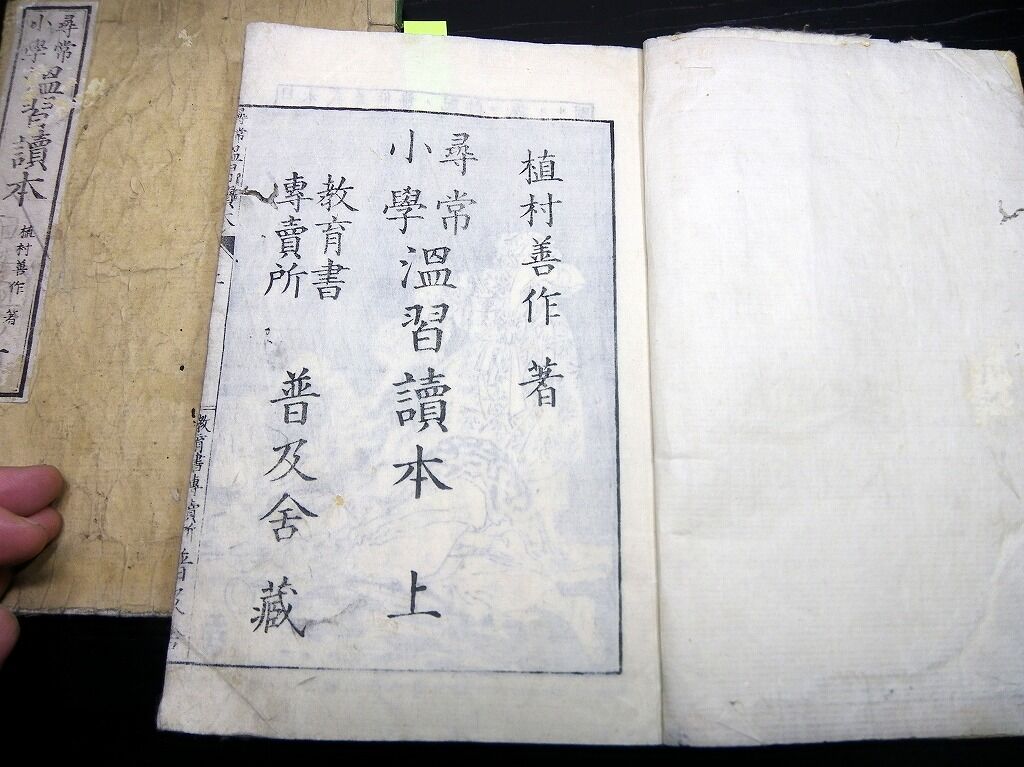 植村善作 著
尋常
小學
温習讀本 上
教育書
專賣所
普及舍 藏
教育書專賣所 普及舍
尋常
小學
温習讀本
植村善作 著